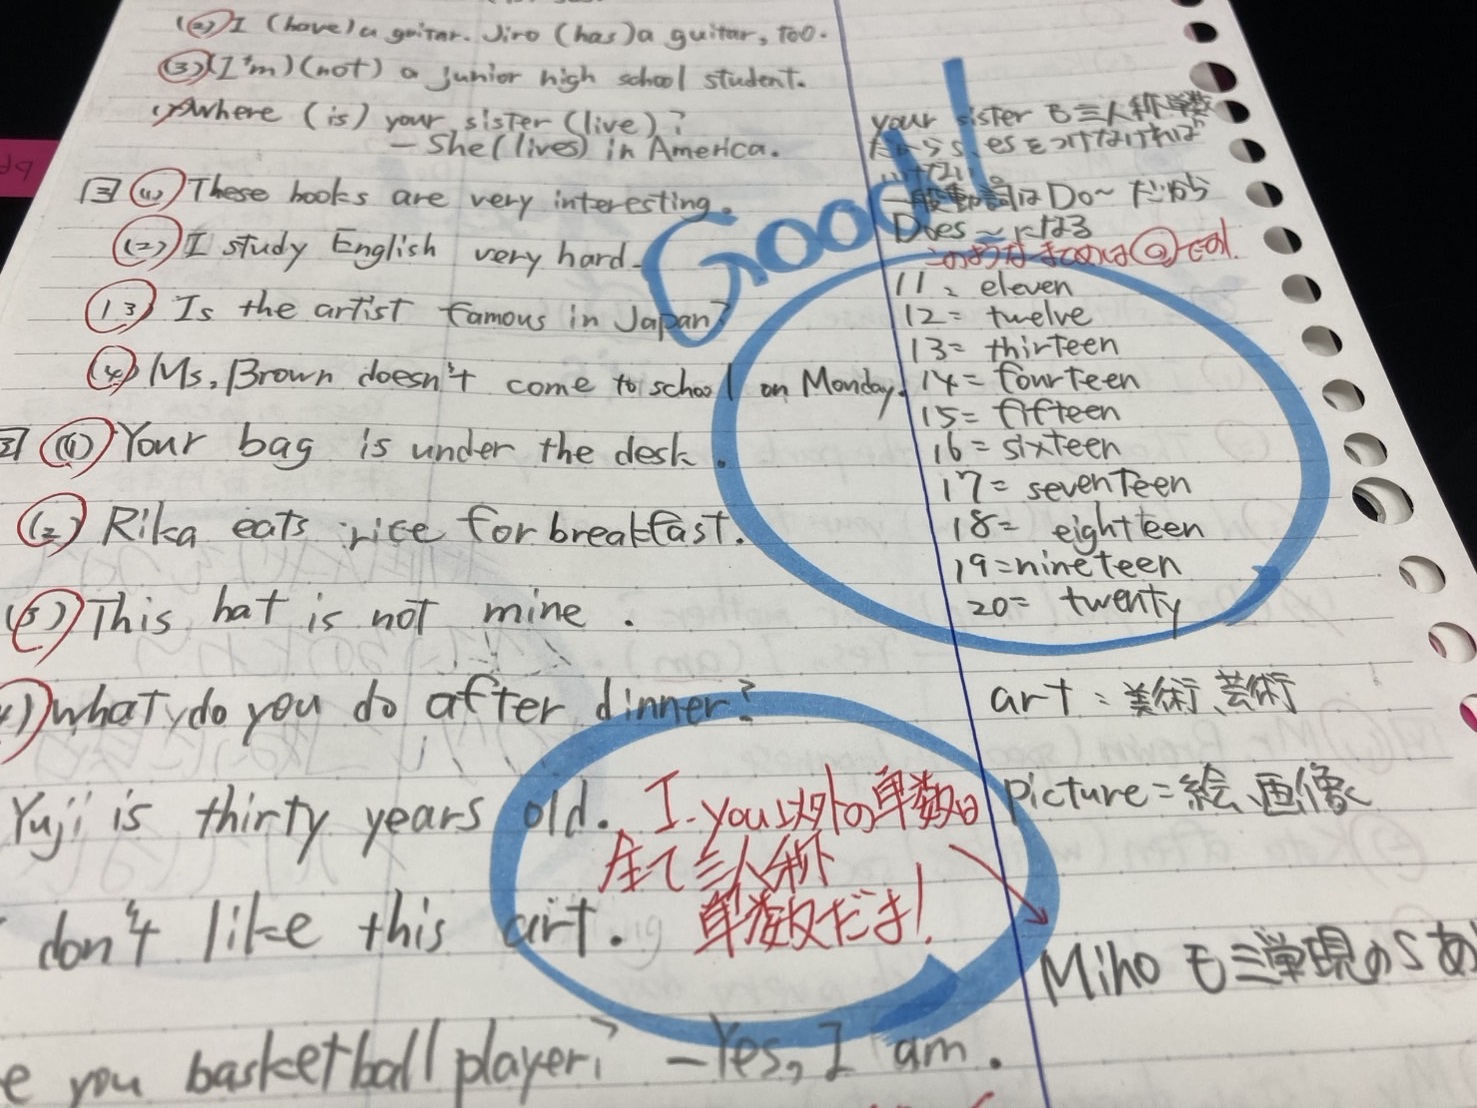 (2) I (have) a guitar. Jiro (has) a guitar, too.
(3) (I'm) (not) a junior high school student.
Where (is) your sister (live)?
— She (lives) in America.
(1) These books are very interesting.
(2) I study English very hard.
(3) Is the artist famous in Japan?
(4) Ms. Brown doesn't come to school on Monday.
(1) Your bag is under the desk.
(2) Rika eats rice for breakfast.
(3) This hat is not mine.
What do you do after dinner?
Yuji is thirty years old.
don't like this art.
e you basketball player? —Yes, I am.
Good!
your sister も三人称単数
だから s, es をつけなければ
いけない。
一般動詞は Do~ だから
Does ~になる
11, eleven
12 = twelve
13 = thirteen
14 = fourteen
15 = fifteen
16 = sixteen
17 = seventeen
18 = eighteen
19 = nineteen
20 = twenty
art : 美術、芸術
picture = 絵、画像
I. you 以外の単数は
全て三人称
単数だよ!
Miho も三単現の s あ